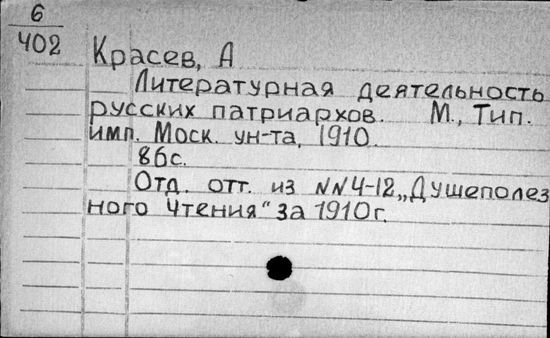 6
402
Красев, А
Литературная деятельность
русских патриархов. М., Тип.
имп. Моск. ун-та, 1910.
86с.
Отд. отт. из NN4-12 „Душеполез
ного Чтения" за 1910г.